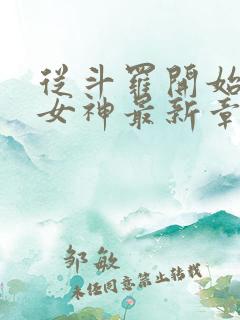 從斗羅開始
女神最新章
邹敏
未经同意禁止转载